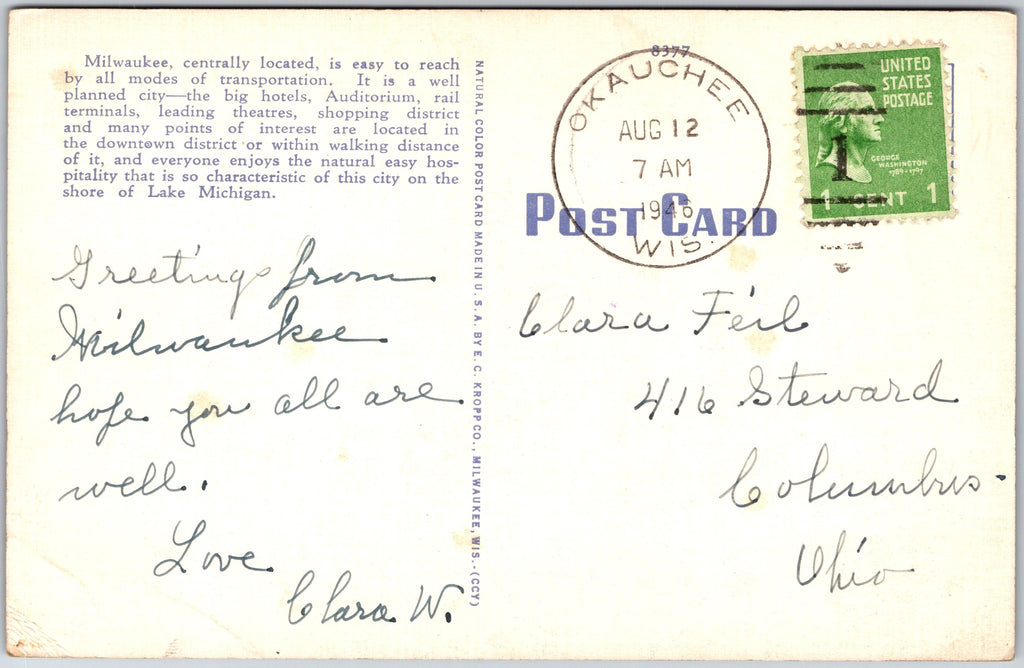 Milwaukee, centrally located, is easy to reach
by all modes of transportation. It is a well
planned city—the big hotels, Auditorium, rail
terminals, leading theatres, shopping district
and many points of interest are located in
the downtown district or within walking distance
of it, and everyone enjoys the natural easy hos-
pitality that is so characteristic of this city on the
shore of Lake Michigan.
Greetings from
Milwaukee
hope you all are
well.
Love
Clara W.
NATURAL COLOR POST CARD MADE IN U.S.A. BY E. C. KROPP CO., MILWAUKEE, WIS.-(CCY)
8377
OKAUCHEE
AUG 12
7 AM
1946
WIS.
POST CARD
UNITED
STATES
POSTAGE
GEORGE
WASHINGTON
1789-1797
1
1 CENT 1
Clara Feil
416 Steward
Columbus
Ohio